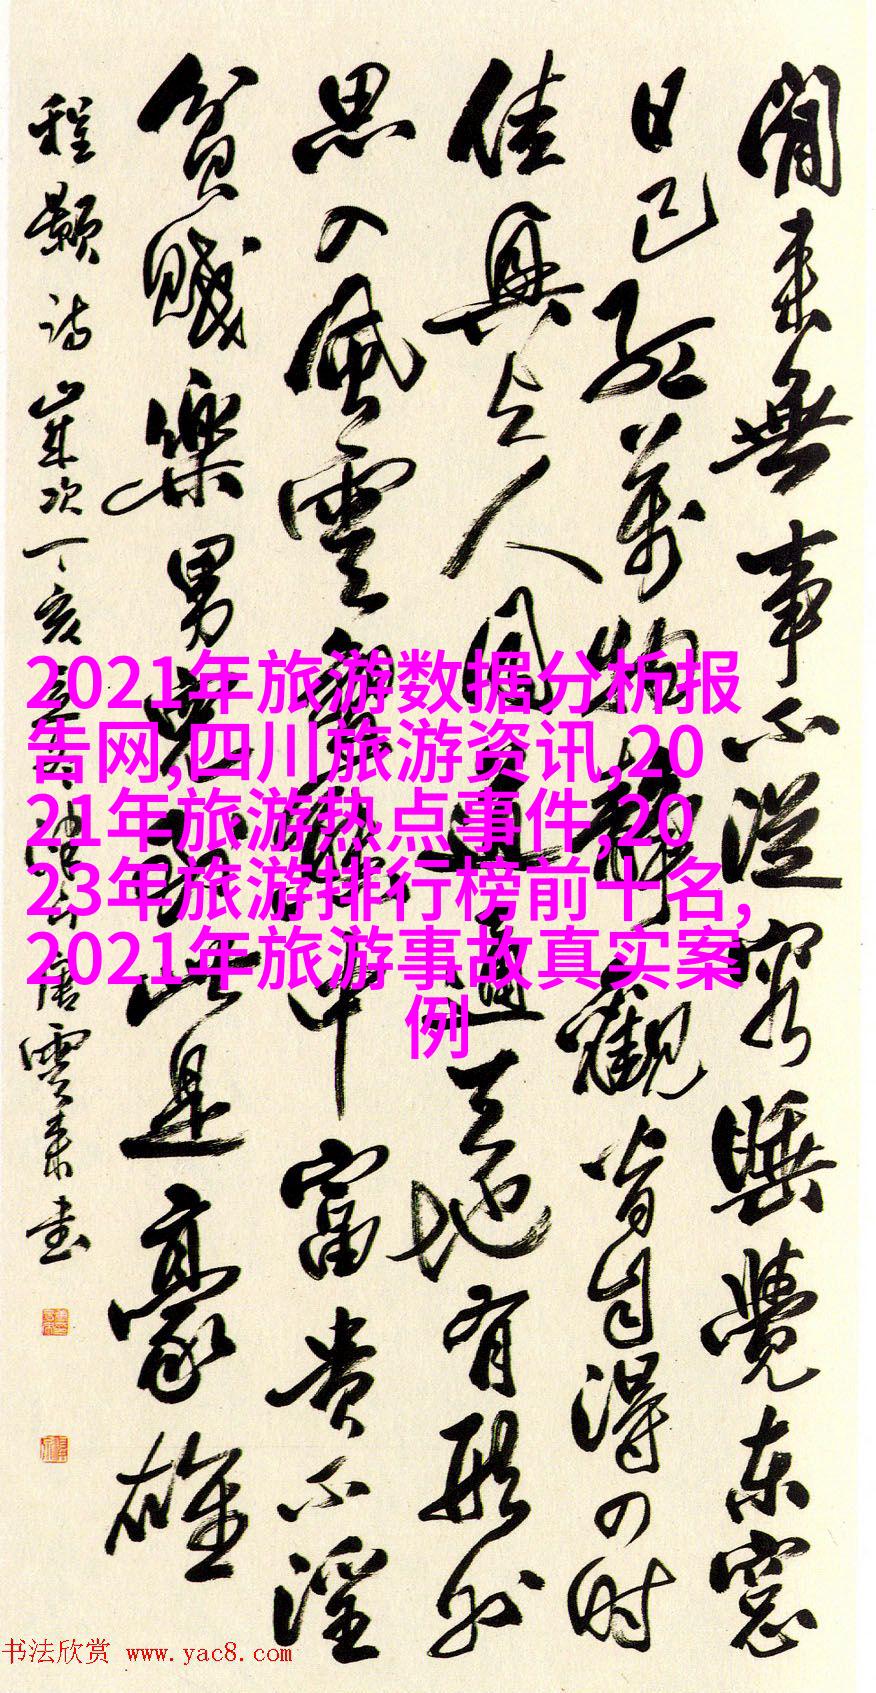 閒來無事不從容睡覺東窗
日已紅萬物靜觀皆自得四时
佳興与人同道通天地有形外
思入風雲變態中富貴不淫
貧賤樂男兒到此是豪雄
程顥詩歲次丁亥唐雲來書
2021年旅游数据分析报
告网,四川旅游资讯,20
21年旅游热点事件,20
23年旅游排行榜前十名,
2021年旅游事故真实案
例
书法欣赏 www.yac8.com